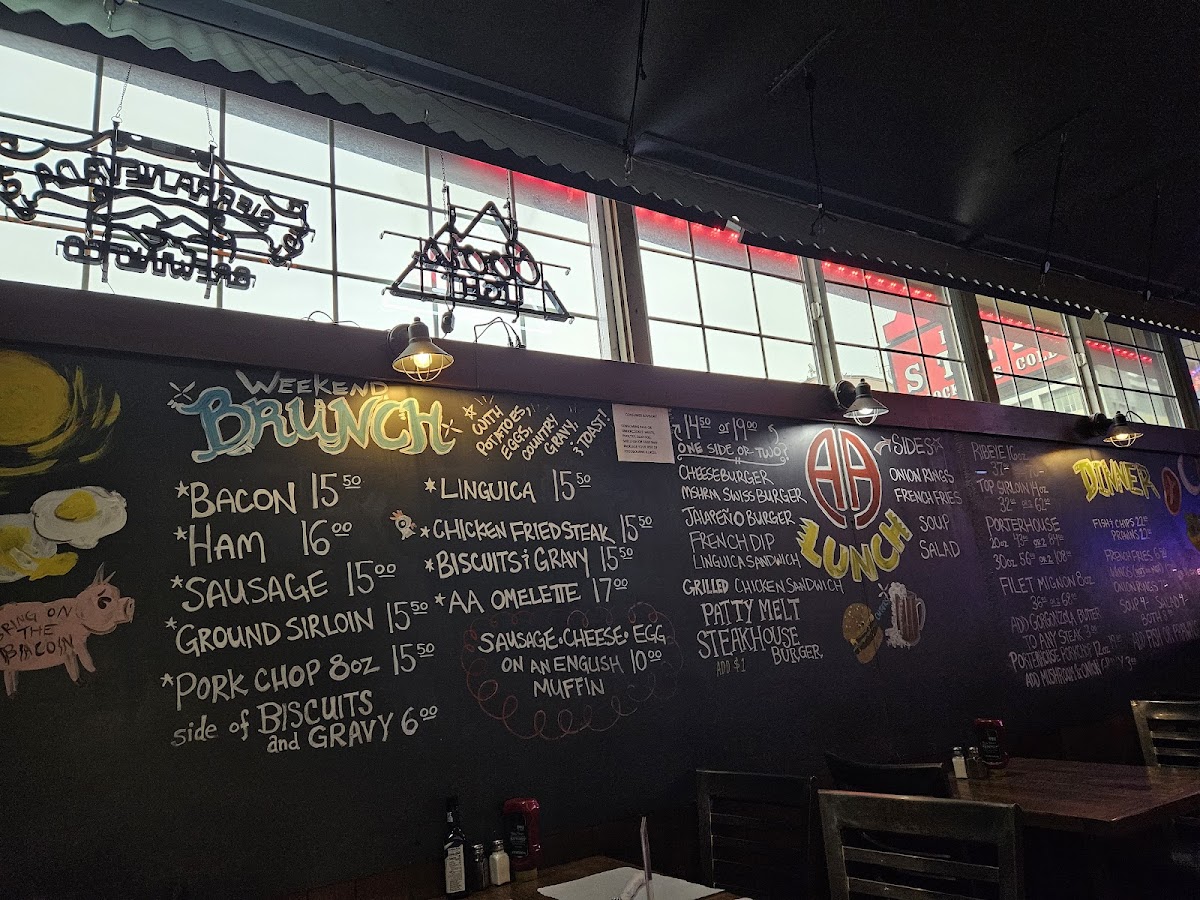 SIERRA NEVADA
BREWING CO
Coors
LIGHT
WEEKEND
BRUNCH
WITH
POTATOES,
EGGS,
COUNTRY
GRAVY,
3 TOAST!
*BACON 15⁵⁰
*HAM 16⁰⁰
*SAUSAGE 15⁰⁰
*GROUND SIRLOIN 15⁵⁰
*PORK CHOP 8OZ 15⁵⁰
side of BISCUITS
and GRAVY 6⁰⁰
*LINGUICA 15⁵⁰
*CHICKEN FRIED STEAK 15⁵⁰
*BISCUITS & GRAVY 15⁵⁰
*AA OMELETTE 17⁰⁰
SAUSAGE • CHEESE • EGG
ON AN ENGLISH 10⁰⁰
MUFFIN
BRING ON
THE
BACON
14⁵⁰ or 19⁰⁰
ONE SIDE OR TWO?
CHEESEBURGER
MSHRM SWISS BURGER
JALAPEÑO BURGER
FRENCH DIP
LINGUICA SANDWICH
GRILLED CHICKEN SANDWICH
PATTY MELT
STEAKHOUSE
BURGER
ADD $1
AA
LUNCH
SIDES
ONION RINGS
FRENCH FRIES
SOUP
SALAD
DINNER
RIBEYE 16oz
37
TOP SIRLOIN 14oz
32
PORTERHOUSE
20oz
30oz 56⁰⁰ OR 2 108⁰⁰
FILET MIGNON 8oz
ADD GORGONZOLA BUTTER
TO ANY STEAK
ADD MUSHROOM & ONION
FISH & CHIPS 22⁰⁰
PRAWNS 22⁰⁰
FRENCH FRIES
ONION RINGS
SOUP SALAD